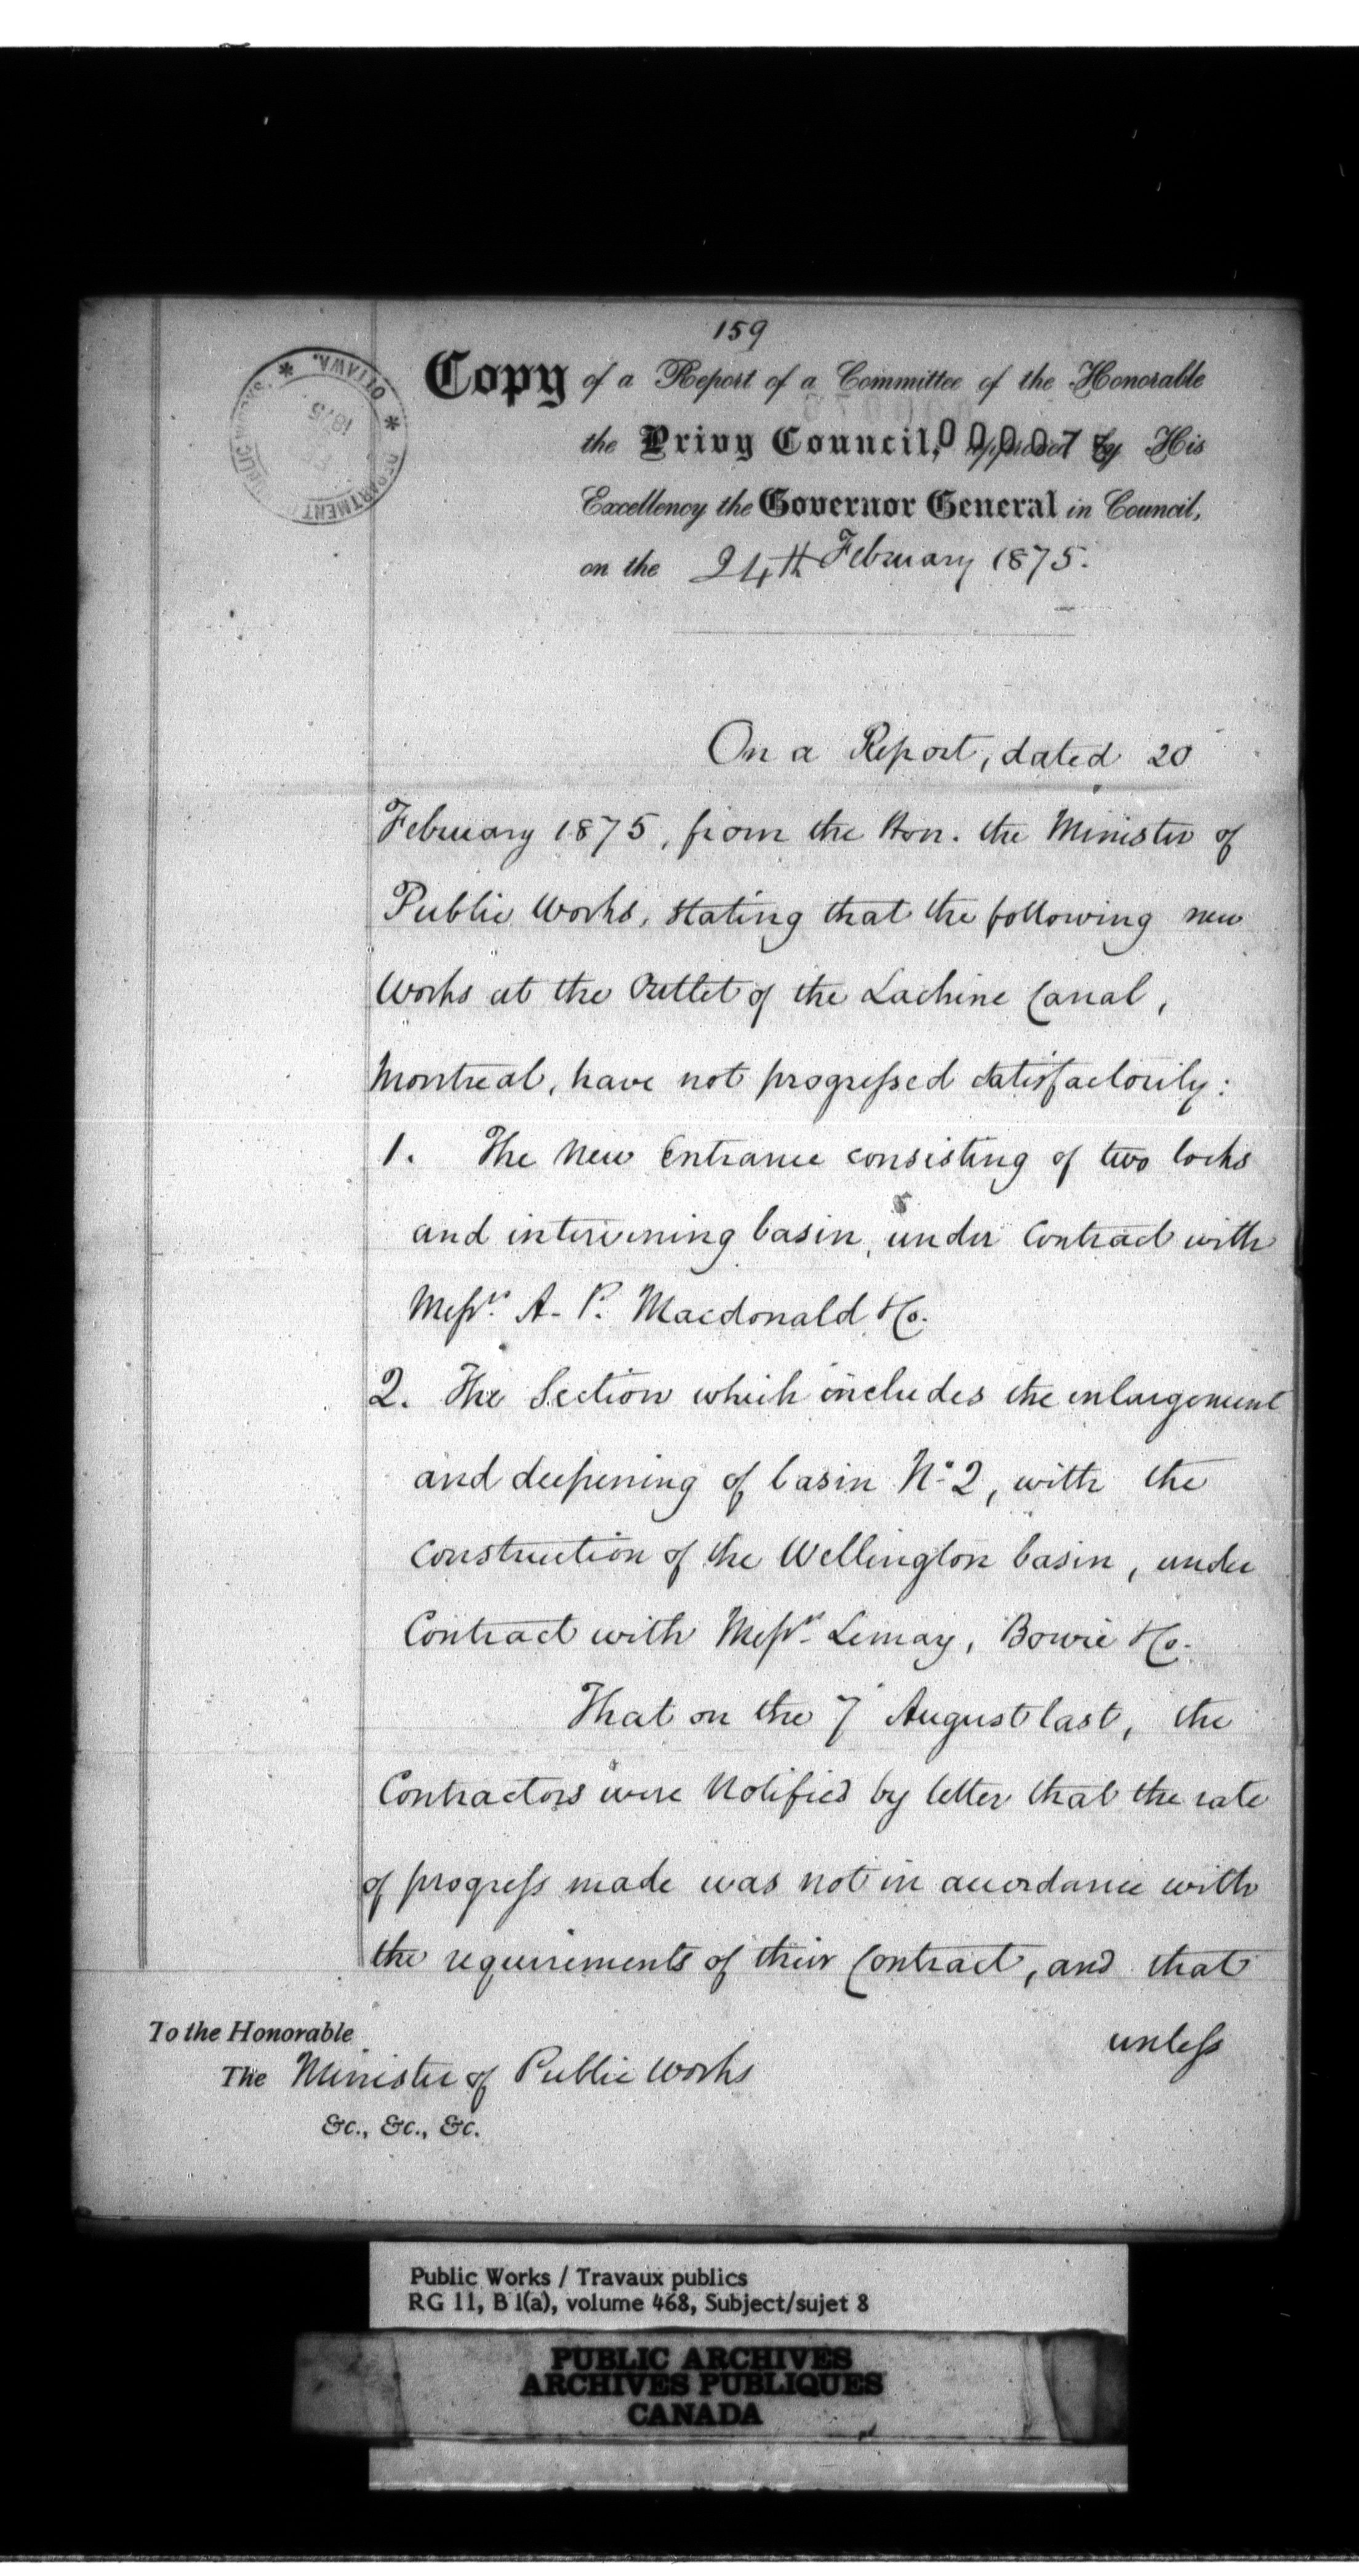 159
Copy of a Report of a Committee of the Honorable
the Privy Council, approved by His
Excellency the Governor General in Council,
on the 24th February 1875.
DEPARTMENT PUBLIC WORKS * OTTAWA. *
1875
On a Report, dated 20
February 1875, from the Hon. the Minister of
Public Works, stating that the following new
Works at the Outlet of the Lachine Canal,
Montreal, have not progressed satisfactorily:
1. The New Entrance consisting of two locks
and intervening basin, under Contract with
Messrs. A. P. Macdonald & Co.
2. The Section which includes the enlargement
and deepening of basin No. 2, with the
Construction of the Wellington basin, under
Contract with Messrs. Lemay, Bowie & Co.
That on the 7 August last, the
Contractors were Notified by letter that the rate
of progress made was not in accordance with
the requirements of their Contract, and that
unless
To the Honorable
The Minister of Public Works
&c., &c., &c.
Public Works / Travaux publics
RG 11, B 1(a), volume 468, Subject/sujet 8
PUBLIC ARCHIVES
ARCHIVES PUBLIQUES
CANADA